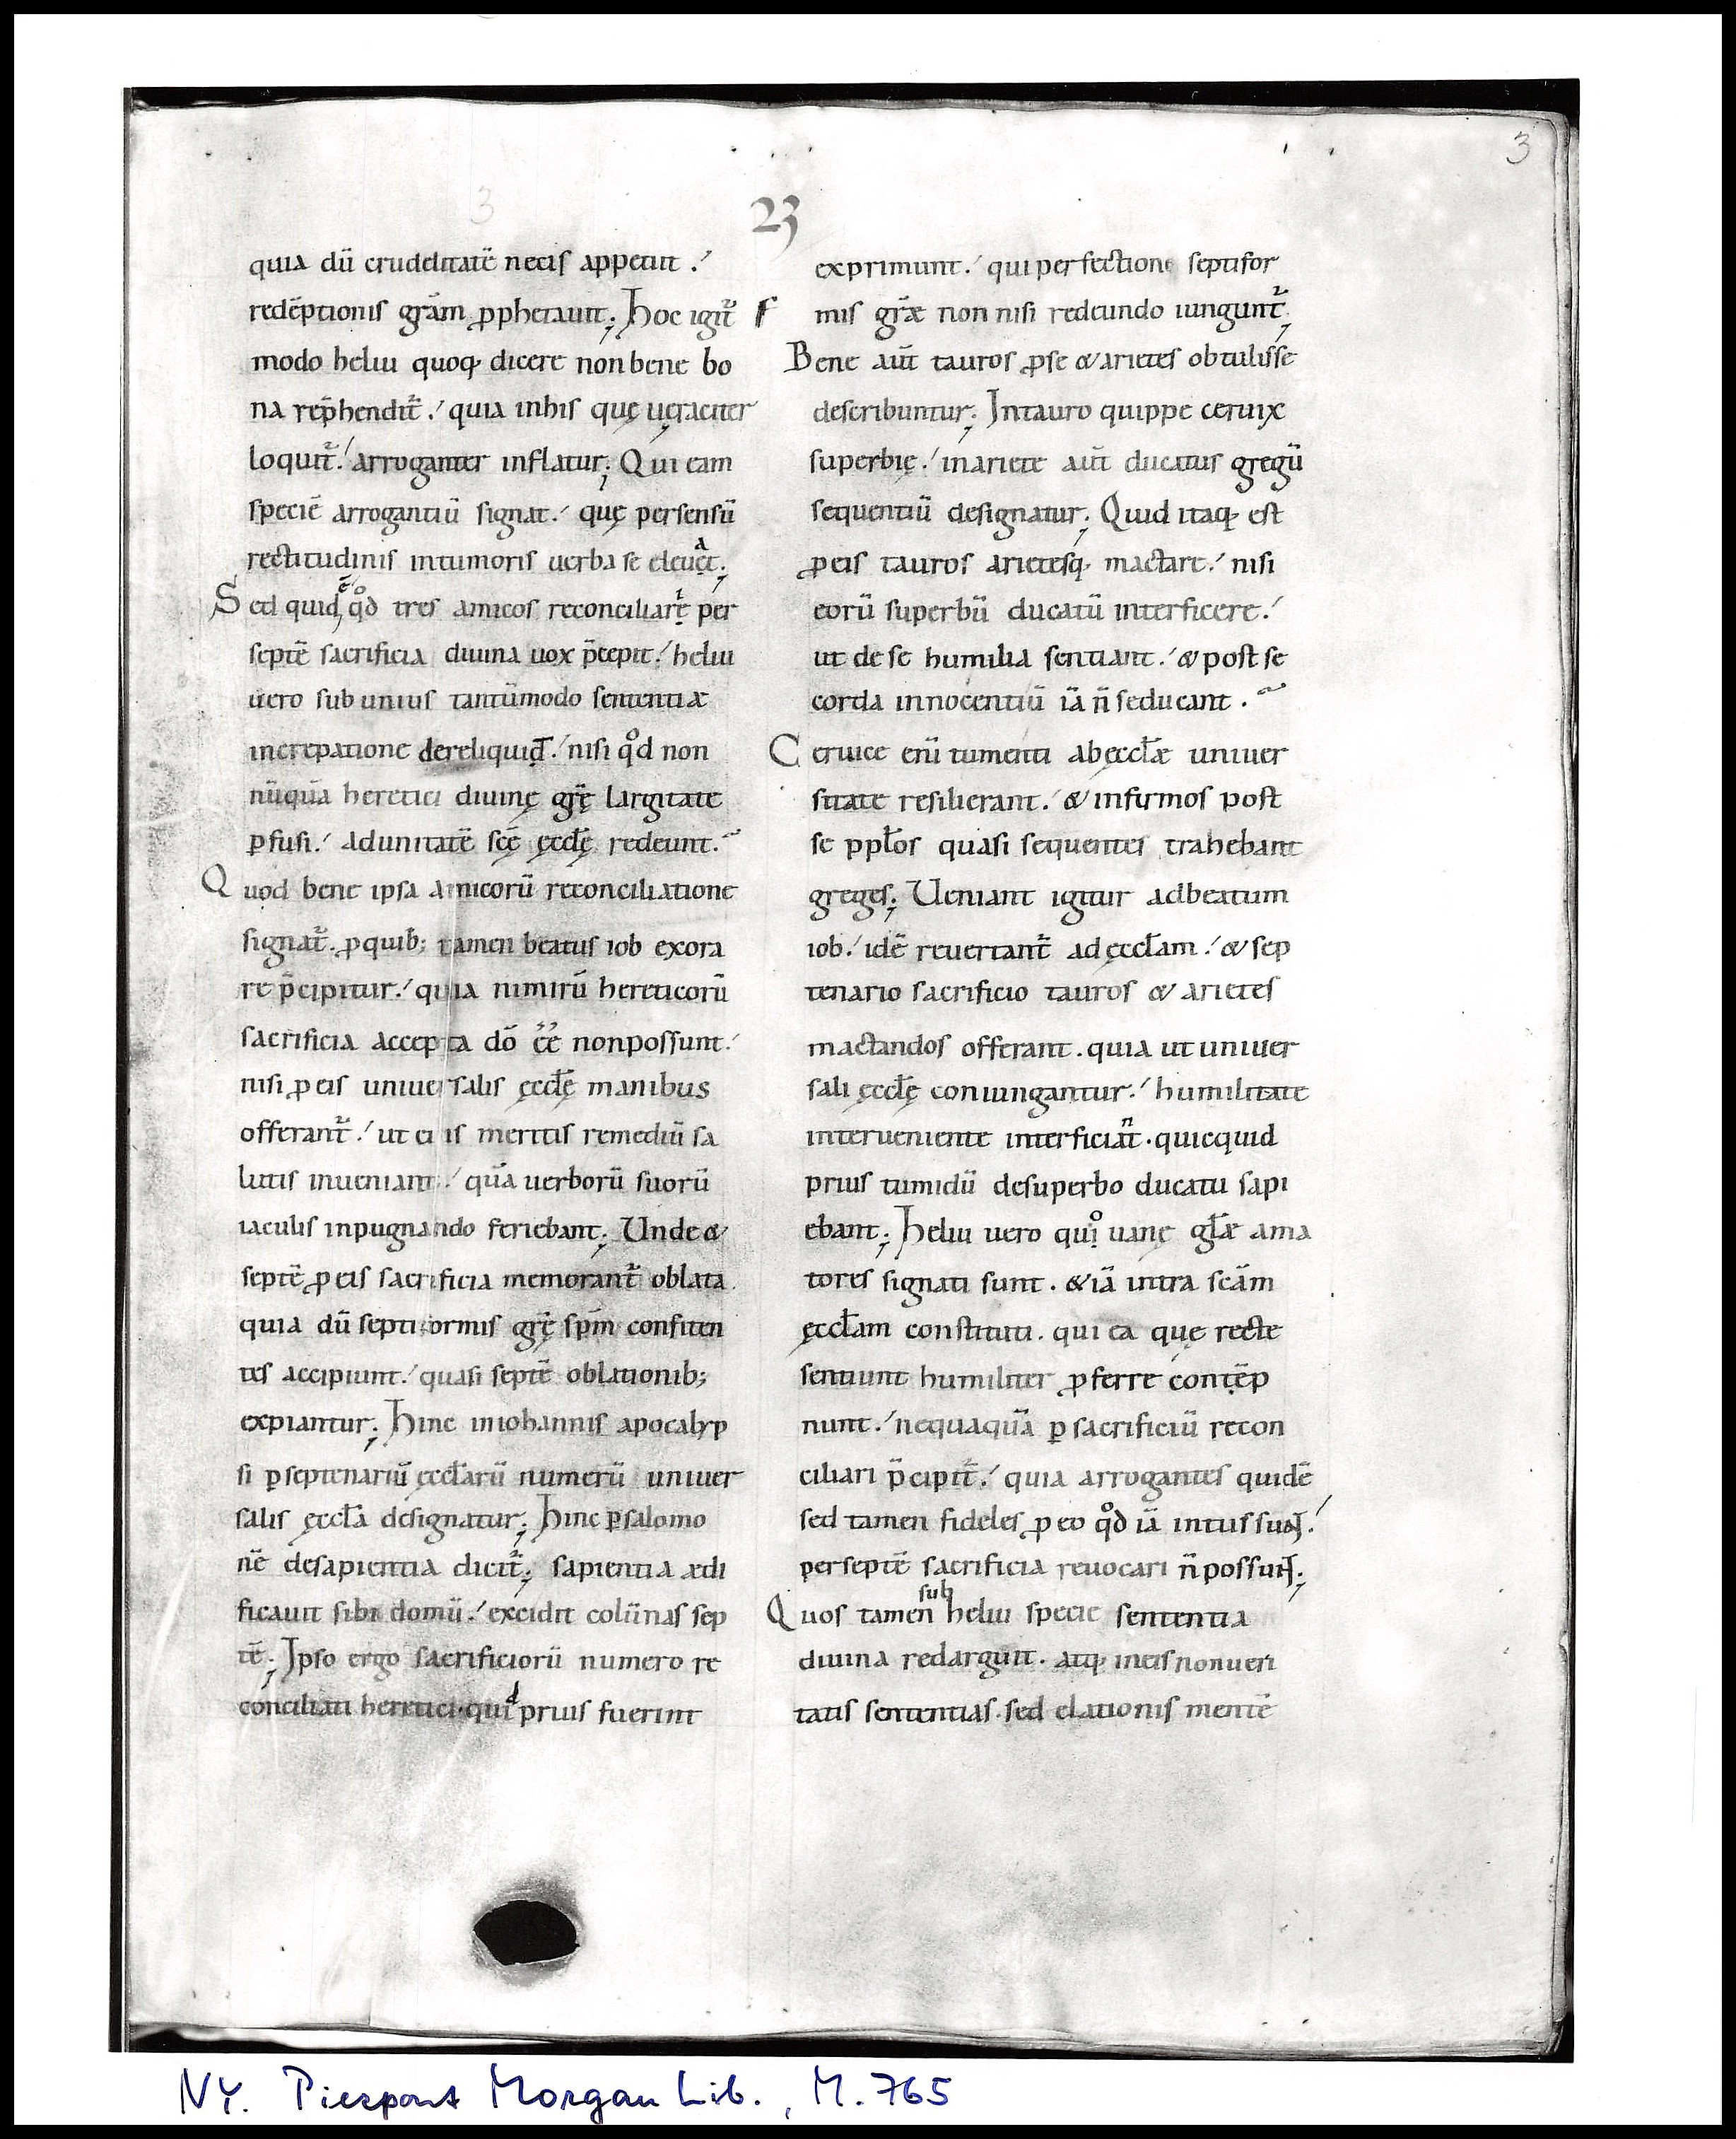 3
3
23
quia dū crudelitatē necis appetiit.
redēptionis grām ꝓphetauit; Hoc igit᷑
modo heliu quoq; dicere non bene bo
na rep̄hendit᷑. quia in his quę ueraciter
loquit᷑. arroganter inflatur; Qui eam
speciē arrogantiū signat. quę per sensū
rectitudinis in tumoris uerba se eleuet;
a
Sed quid, qͦd tres amicos reconciliari per
ē
septē sacrificia diuina uox p̄cepit. heliu
uero sub unius tantūmodo sententiæ
increpatione dereliquid. nisi qͦd non
nūquā heretici diuinę grę̄ largitate
ꝑfusi. ad unitatē scę̄ ęccłę redeunt.
Quod bene ipsa amicorū reconciliatione
signat᷑. ꝓ quib; tamen beatus iob exora
re p̄cipitur. quia nimirū hereticorū
sacrificia accepta dō ēē non possunt.
nisi ꝓ eis uniuersalis ęccłę manibus
offerant᷑. ut eius meritis remediū sa
lutis inueniant. quā uerborū suorū
iaculis inpugnando feriebant; Unde &
septē ꝓ eis sacrificia memorant᷑ oblata.
quia dū septiformis grę̄ sp̄m confiten
tes accipiunt. quasi septē oblationib;
expiantur; Hinc in iohannis apocalyp
si ꝑ septenariū ęccłarū numerū uniuer
salis ęccła designatur; Hinc ꝑ salomo
nē de sapientia dicit᷑; sapientia ædi
ficauit sibi domū. excidit colūnas sep
tē; Ipso ergo sacrificiorū numero re
conciliati heretici. quid prius fuerint
exprimunt. qui perfectione septifor
mis grǣ non nisi redeundo iungunt᷑;
Bene aūt tauros ꝓ se & arietes obtulisse
describuntur; In tauro quippe ceruix
superbię. in ariete aūt ducatus gregū
sequentiū designatur; Quid itaq; est
ꝓ eis tauros arietesq; mactare. nisi
eorū superbū ducatū interficere.
ut de se humilia sentiant. & post se
corda innocentiū iā n̄ seducant.
Ceruice eni tumenti ab ęccłæ uniuer
sitate resilierant. & infirmos post
se ppłos quasi sequentes trahebant
greges; Ueniant igitur ad beatum
iob. idē reuertant᷑ ad ęccłam. & sep
tenario sacrificio tauros & arietes
mactandos offerant. quia ut uniuer
sali ęccłę coniungantur. humilitate
interueniente interficiat. quicquid
n
prius tumidū de superbo ducatu sapi
ebant; Heliu uero quo uanę głæ ama
tores signati sunt. & iā intra scām
ęccłam constituti. qui ea quę recte
sentiunt humiliter ꝓferre contēp
nunt. nequaquā ꝑ sacrificiū recon
ciliari p̄cipit᷑. quia arrogantes quidē
sed tamen fideles ꝓ eo qͦd iā intus sunt.
per septē sacrificia reuocari n̄ possunt;
sub
Quos tamen heliu specie sententia
diuina redarguit. atq; in eis non ueri
tatis sententias. sed elationis mentē
NY. Pierpont Morgan Lib., M. 765